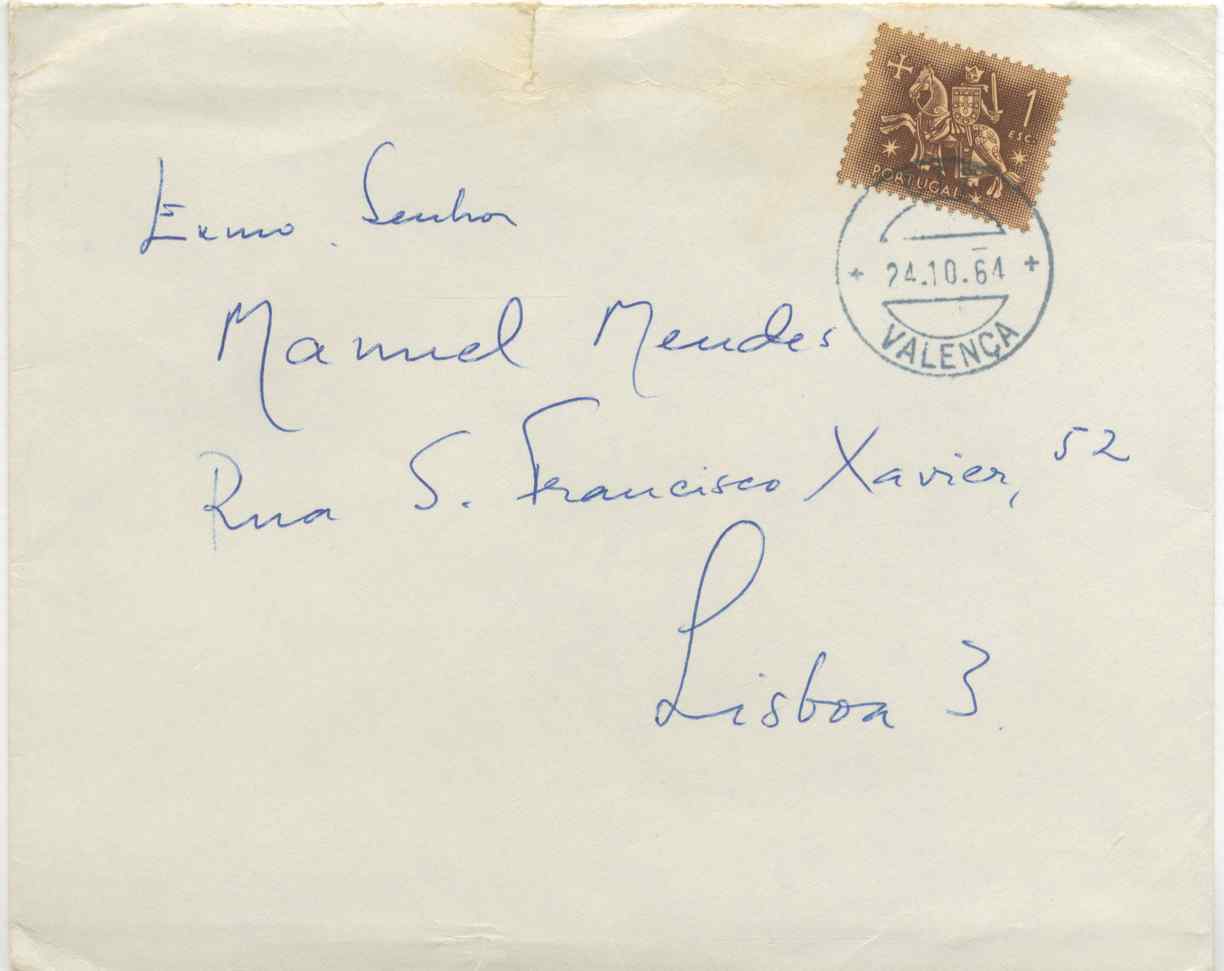 1
ESC.
PORTUGAL
24.10.64
VALENÇA
Exmo. Senhor
Manuel Mendes
Rua S. Francisco Xavier, 52
Lisboa 3.